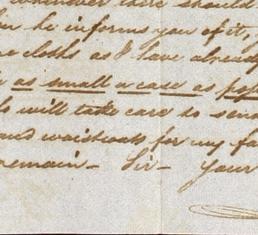 whenever there should
he informs you of it,
cloths as I have already
as small a case as pos
will take care to send
and waistcoats for my fa
remain - Sir - Your